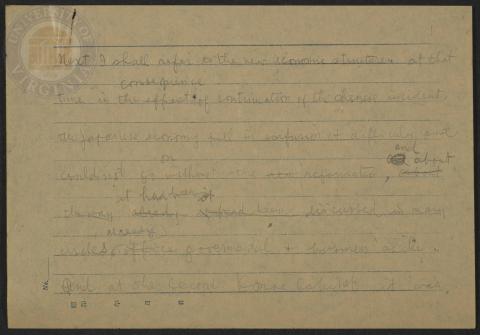 UNIVERSITY OF VIRGINIA
Next I shall refer to the new economic structure. At that
consequence
time in the effect of continuation of the chinese incident,
the Japanese economy fell in confusion & difficulty and
on and
could not go without the new reformation, about
it had been
already discussed in many
already
circles, office governmental & business as
And at the Second Konoe Cabinet it was
No.